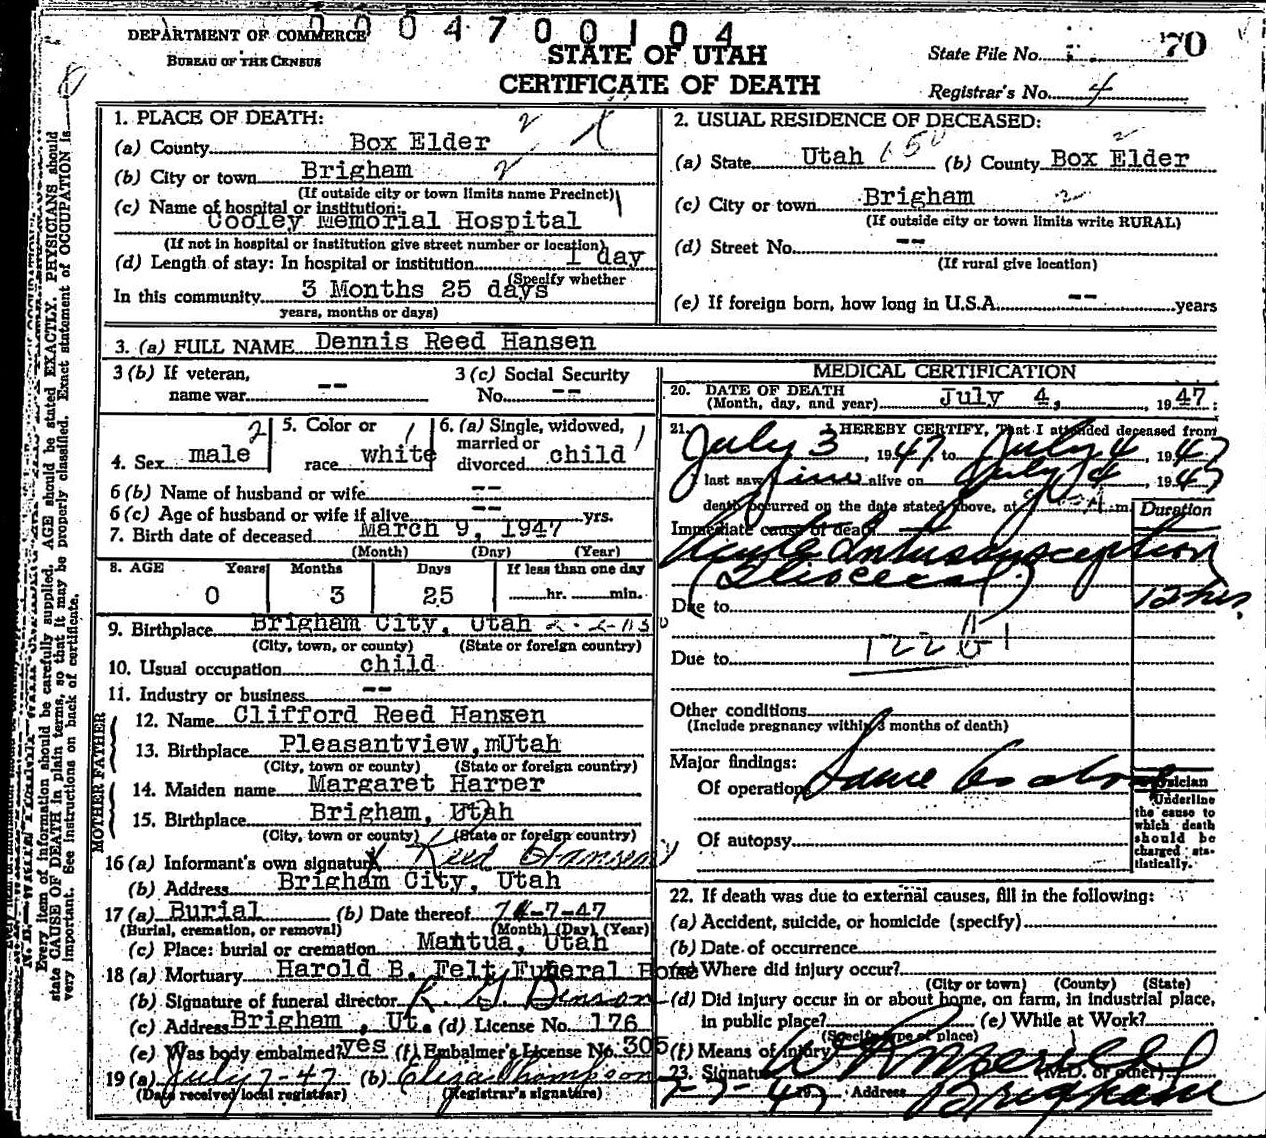 0004700104
DEPARTMENT OF COMMERCE
BUREAU OF THE CENSUS
STATE OF UTAH
CERTIFICATE OF DEATH
State File No. 70
Registrar's No. 4
1. PLACE OF DEATH:
(a) County Box Elder
(b) City or town Brigham
(If outside city or town limits name Precinct)
(c) Name of hospital or institution:
Cooley Memorial Hospital
(If not in hospital or institution give street number or location)
(d) Length of stay: In hospital or institution 1 day
(Specify whether
In this community 3 Months 25 days
years, months or days)
2. USUAL RESIDENCE OF DECEASED:
(a) State Utah (b) County Box Elder
(c) City or town Brigham
(If outside city or town limits write RURAL)
(d) Street No. --
(If rural give location)
(e) If foreign born, how long in U.S.A. -- years
3. (a) FULL NAME Dennis Reed Hansen
3 (b) If veteran, name war --
3 (c) Social Security No. --
4. Sex male
5. Color or race white
6. (a) Single, widowed, married or divorced child
6 (b) Name of husband or wife --
6 (c) Age of husband or wife if alive -- yrs.
7. Birth date of deceased March 9, 1947
(Month) (Day) (Year)
8. AGE Years Months Days If less than one day
0 3 25 hr. min.
9. Birthplace Brigham City, Utah
(City, town, or county) (State or foreign country)
10. Usual occupation child
11. Industry or business --
FATHER
12. Name Clifford Reed Hansen
13. Birthplace Pleasantview, mUtah
(City, town or county) (State or foreign country)
MOTHER
14. Maiden name Margaret Harper
15. Birthplace Brigham, Utah
(City, town or county) (State or foreign country)
16 (a) Informant's own signature Reed Hansen
(b) Address Brigham City, Utah
17 (a) Burial (b) Date thereof 7-7-47
(Burial, cremation, or removal) (Month) (Day) (Year)
(c) Place: burial or cremation Mantua, Utah
18 (a) Mortuary Harold B. Felt Funeral Home
(b) Signature of funeral director
(c) Address Brigham, Ut. (d) License No. 176
(e) Was body embalmed? yes (f) Embalmer's License No. 305
19 (a) July 7-47 (b) Eliza Thompson
(Date received local registrar) (Registrar's signature)
MEDICAL CERTIFICATION
20. DATE OF DEATH
(Month, day, and year) July 4, 1947
21. I HEREBY CERTIFY, That I attended deceased from
July 3, 1947, to July 4, 1947
I last saw him alive on July 4, 1947
death occurred on the date stated above, at m.
Immediate cause of death Duration
Acute Intussusception
(Iliocecal) 12 hrs.
Due to
Due to
Other conditions
(Include pregnancy within 3 months of death)
Major findings:
Of operation Same as above
Of autopsy
Physician
Underline the cause to which death should be charged statistically.
22. If death was due to external causes, fill in the following:
(a) Accident, suicide, or homicide (specify)
(b) Date of occurrence
(c) Where did injury occur?
(City or town) (County) (State)
(d) Did injury occur in or about home, on farm, in industrial place,
in public place? (e) While at Work?
(Specify type of place)
(f) Means of injury
23. Signature (M.D. or other)
7-7-47 Address Brigham
Every item of information should be carefully supplied. AGE should be stated EXACTLY. PHYSICIANS should
state CAUSE OF DEATH in plain terms, so that it may be properly classified. Exact statement of OCCUPATION is
very important. See instructions on back of certificate.